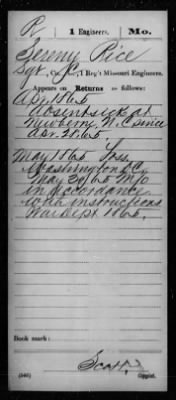 R 1 Engineers. Mo.
Jeremy Rice
Sgt, Co. C, 1 Reg't Missouri Engineers.
Appears on Returns as follows:
Apr. 1865
Absent sick at
Newbern, N.C. since
Apr. 28, 65.
May 1865
Washington D.C.
May 30/65 M/O
in accordance
with instructions
War Dept 1865.
Book mark:
(546) Copyist.